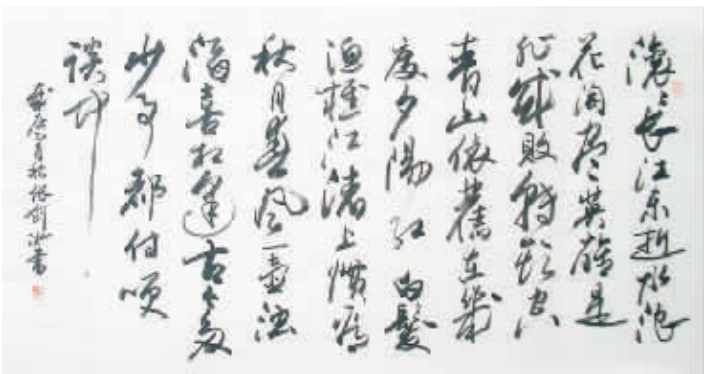 滚滚长江东逝水浪
花淘盡英雄是
非成敗轉頭空
青山依舊在幾
度夕陽红白髮
渔樵江渚上惯看
秋月春风一壶浊
酒喜相逢古今多
少事都付笑
談中